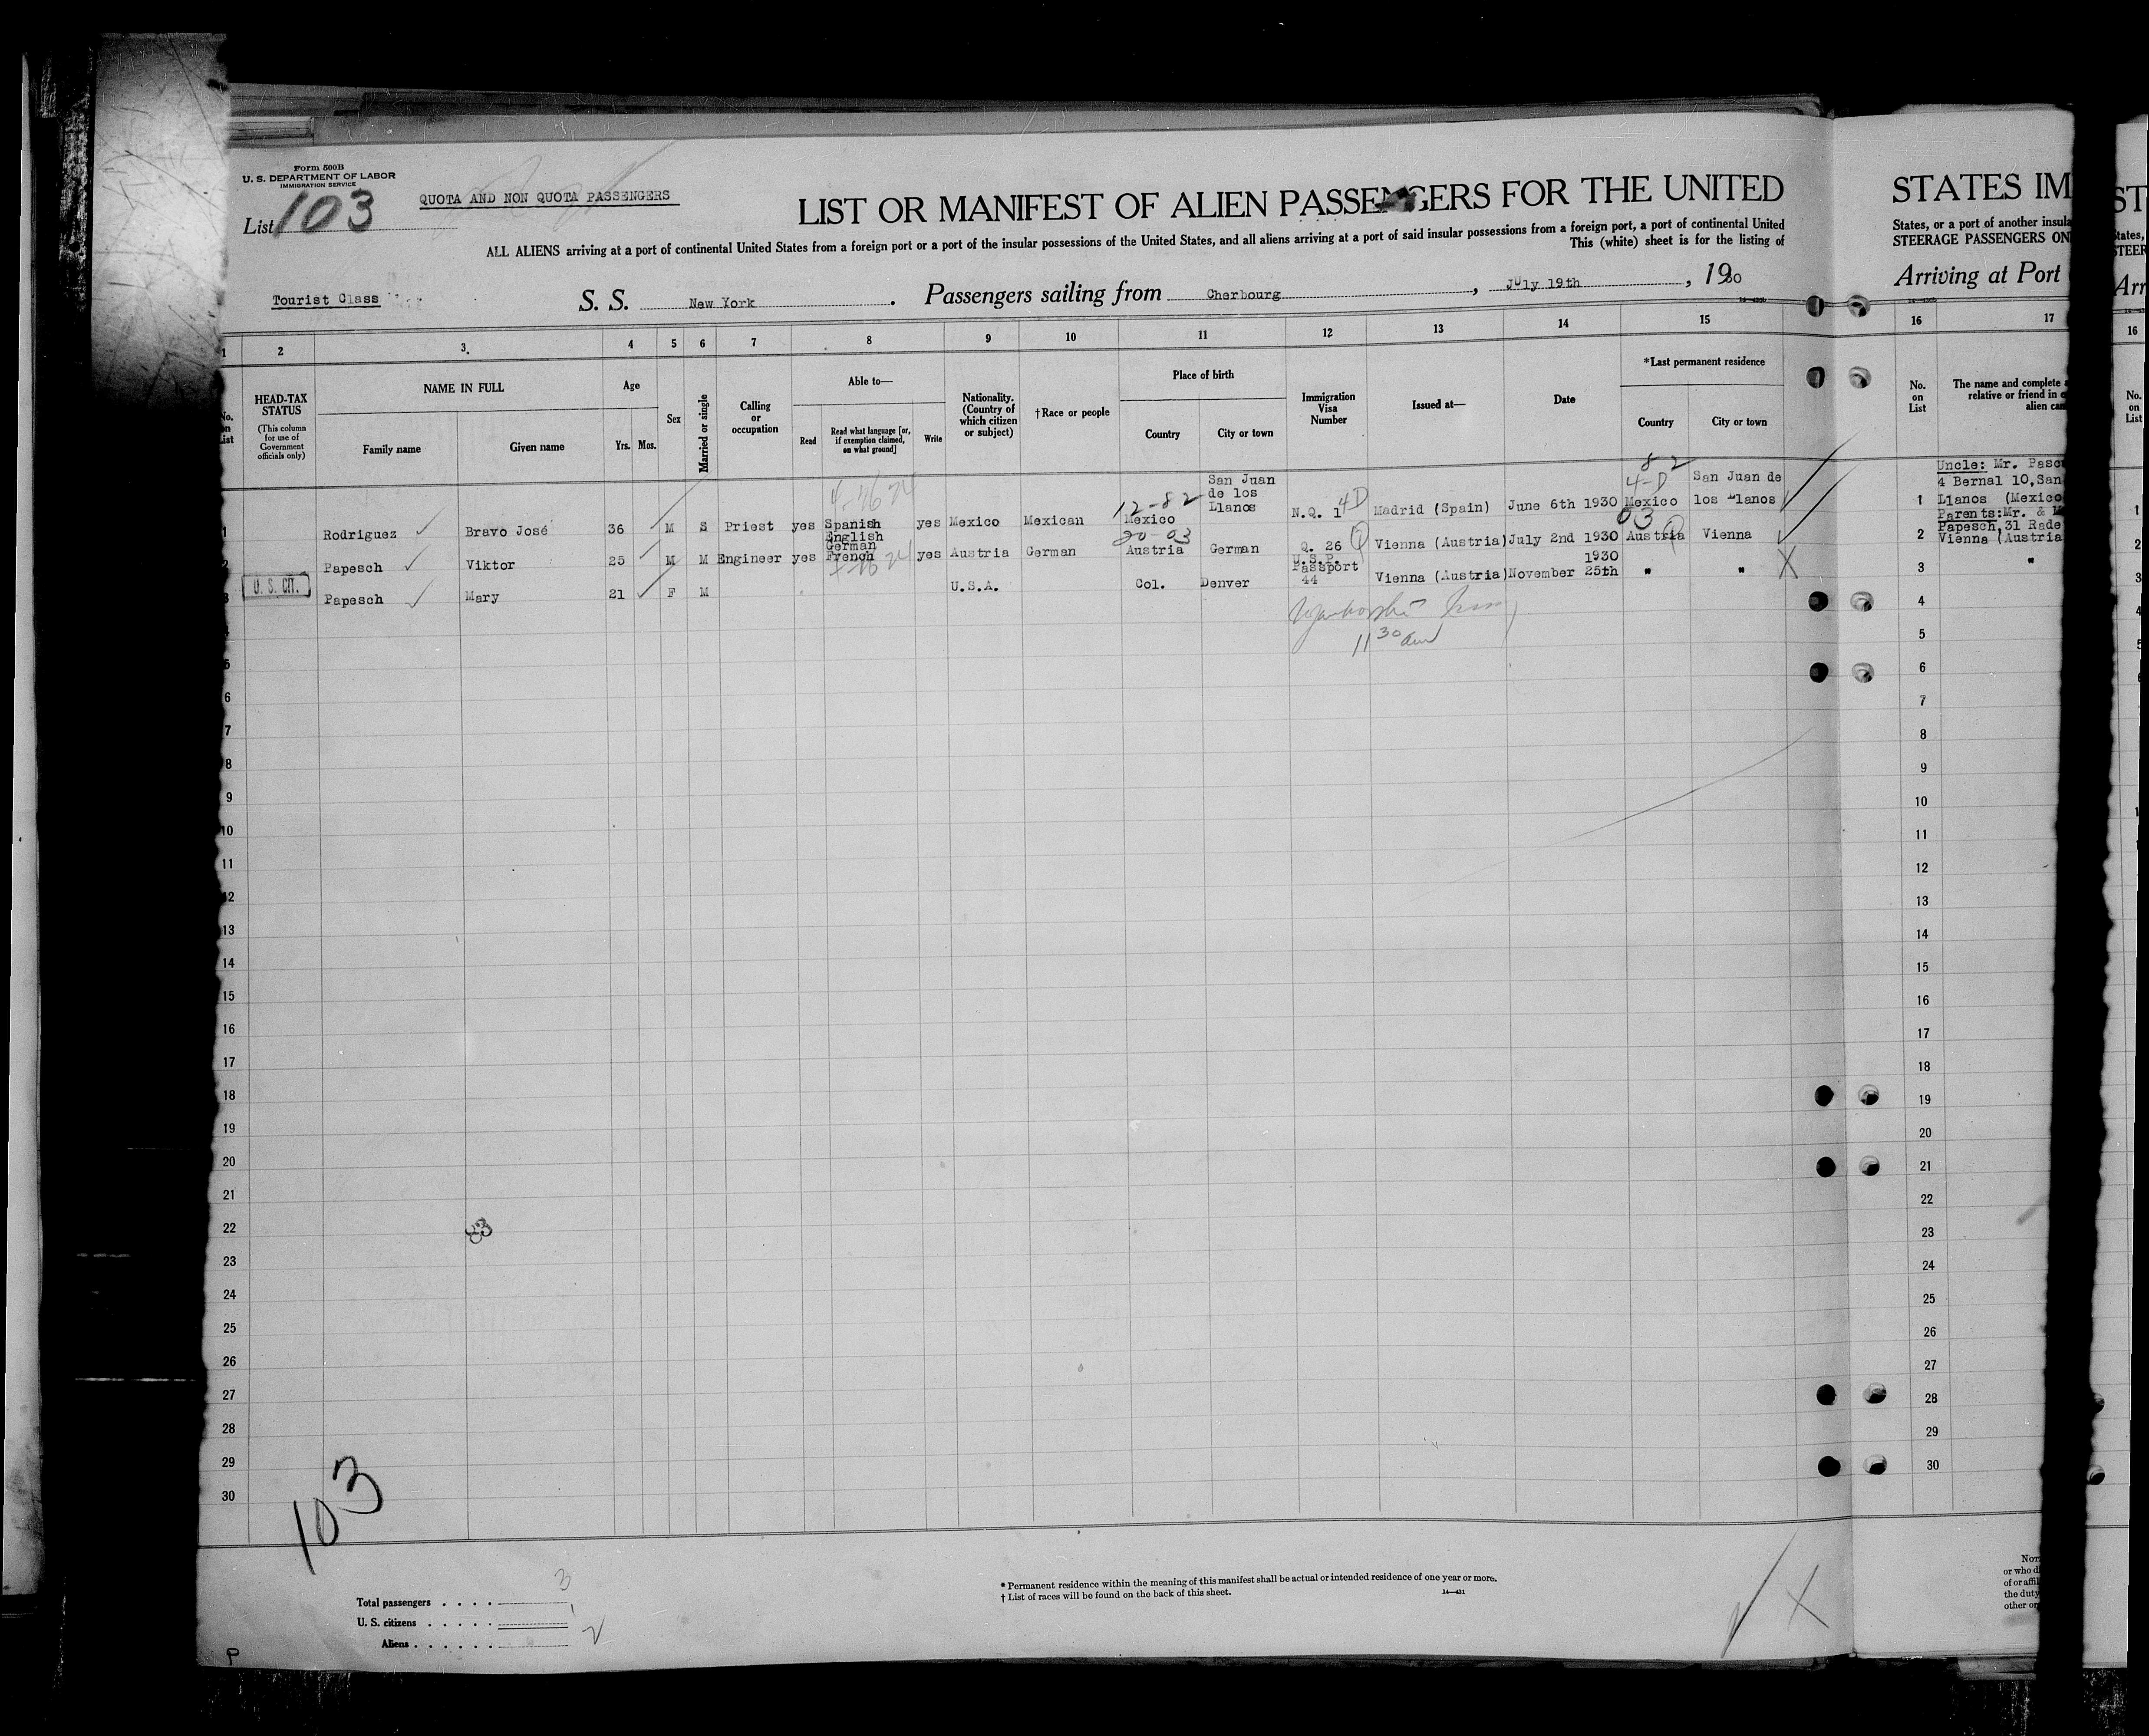 Form 500B
U. S. DEPARTMENT OF LABOR
IMMIGRATION SERVICE
List 103
QUOTA AND NON QUOTA PASSENGERS
LIST OR MANIFEST OF ALIEN PASSENGERS FOR THE UNITED
ALL ALIENS arriving at a port of continental United States from a foreign port or a port of the insular possessions of the United States, and all aliens arriving at a port of said insular possessions from a foreign port, a port of continental United
This (white) sheet is for the listing of
Tourist Class S. S. New York . Passengers sailing from Cherbourg , July 19th , 1930
1 2 3. 4 5 6 7 8 9 10 11 12 13 14 15
No. on List
HEAD-TAX STATUS
(This column for use of Government officials only)
NAME IN FULL
Family name Given name
Age
Yrs. Mos.
Sex
Married or single
Calling or occupation
Able to—
Read
Read what language [or, if exemption claimed, on what ground]
Write
Nationality. (Country of which citizen or subject)
†Race or people
Place of birth
Country City or town
Immigration Visa Number
Issued at—
Date
*Last permanent residence
Country City or town
1 Rodriguez Bravo José 36 M S Priest yes Spanish English yes Mexico Mexican 12-82 Mexico San Juan de los Llanos N.Q. 1 4D Madrid (Spain) June 6th 1930 82 4-D Mexico San Juan de los Llanos
2 Papesch Viktor 25 M M Engineer yes German French yes Austria German 20-03 Austria German Q. 26 Vienna (Austria) July 2nd 1930 03 Austria Vienna
U. S. CIT.
3 Papesch Mary 21 F M U.S.A. Col. Denver U.S.P. Passport 44 Vienna (Austria) November 25th 1930 " " X
11 30 am
4
5
6
7
8
9
10
11
12
13
14
15
16
17
18
19
20
21
22
23
24
25
26
27
28
29
30
83
103
Total passengers 3
U. S. citizens 1
Aliens 2
* Permanent residence within the meaning of this manifest shall be actual or intended residence of one year or more.
† List of races will be found on the back of this sheet.
14—431
X
STATES IM
States, or a port of another insula
STEERAGE PASSENGERS ON
Arriving at Port
16 17
No. on List
The name and complete a
relative or friend in c
alien cam
Uncle: Mr. Pasc
4 Bernal 10,San
1 Llanos (Mexico
Parents:Mr. & M
2 Papesch,31 Rade
Vienna (Austria
3 "
4
5
6
7
8
9
10
11
12
13
14
15
16
17
18
19
20
21
22
23
24
25
26
27
28
29
30
or who di
of or affil
the duty
other or
ST
States,
STEER
Arr
16
No. on List
1
2
3